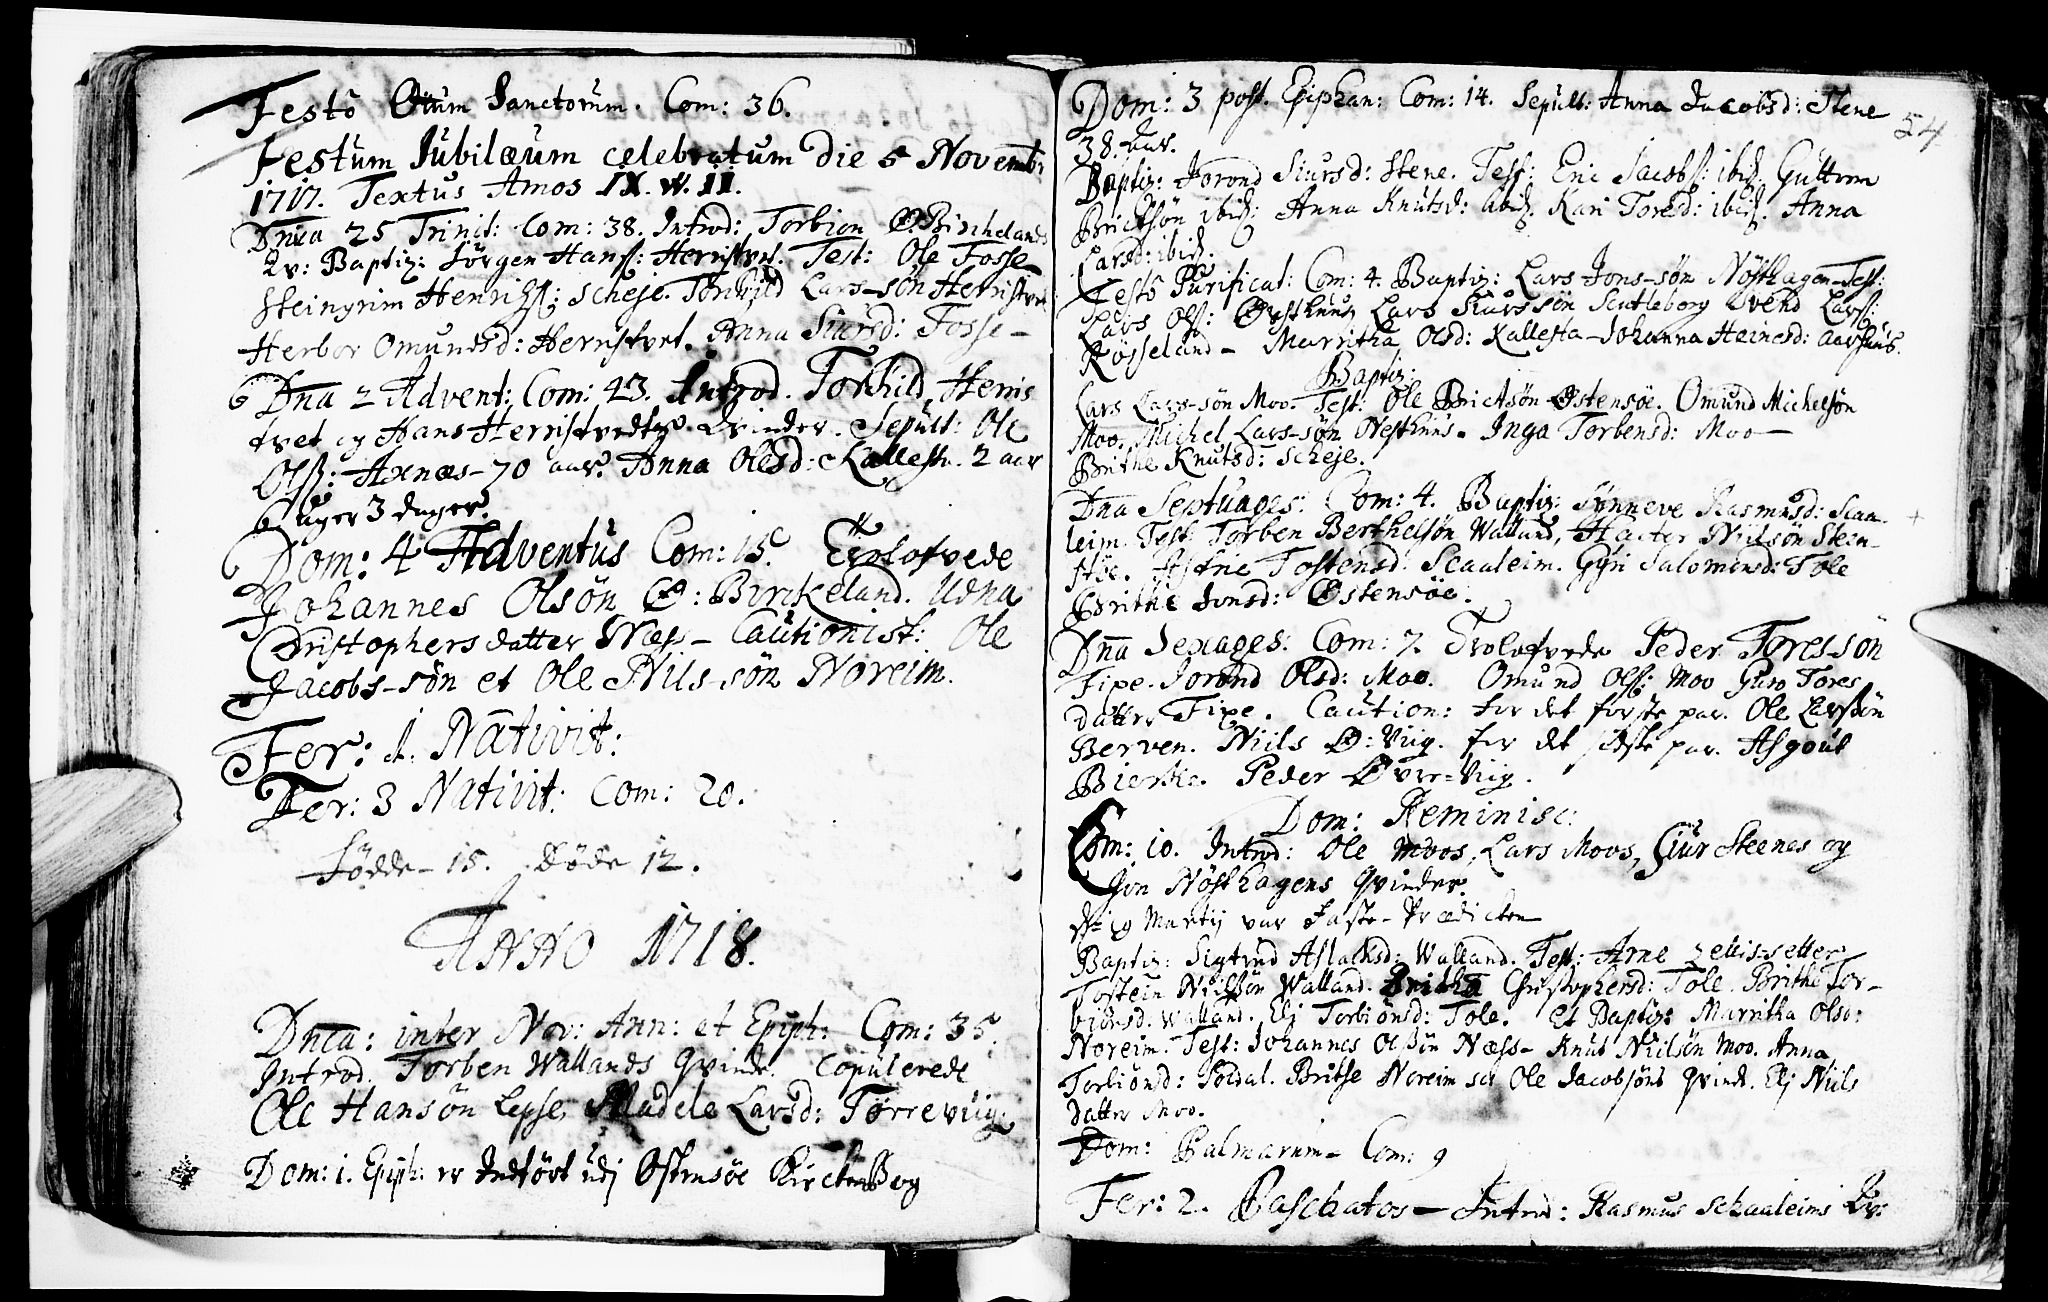 Festo Oium Sanctorum. Com: 36.
Festum Jubilæum celebratum die 5 Novembr:
1717. Textus Amos IX. W. 11.
Dnica 25 Trinit: Com: 38. Introd: Torbiøn Ø. Birchelands
Qv: Baptiz: Jørgen Hans: Herristvet. Test: Ole Fosse
Steingrim Henrichs: Scheje. Torkild Lars-søn Herristvet
Herbor Omundsd: Herristvet. Anna Siursd: Fosse-
Dna 2 Advent: Com: 43. Introd. Torkild Herris
tvet og Hans Herristvedts Qvinder. Sepult: Ole
Olss: Axnæs-70 aar. Anna Olesd: Kallestr. 2 aar
6 uger 3 dager.
Dom: 4 Adventus Com: 15. Trolofvede
Johannes Olsøn Ø: Birckeland. Udna
Christophersdatter Næss- Cautionist: Ole
Jacobs-søn et Ole Nils-søn Noreim.
Fer: 1. Nativit:
Fer: 3 Nativit: Com: 20.
Fødde-15. Døde 12.
ANNO 1718.
Dnica: inter Nov: Ann: et Epiph: Com: 35.
Introd. Torben Wallands Qvinde. Copulerede
Ole Hansøn Lepse, Madele Larsd: Tørreviig.
Dom: 1. Epiph: er Indført udj Ostensøe KirckeBog
54
Dom: 3 post. Epiphan: Com: 14. Sepult: Anna Jacobsd: Stene
38. Aar.
Baptiz: Jorond Siursd: Stene. Test: Eric Jacobs: ibid. Guttorm
Brictsøn ibid: Anna Knutsd: ibid. Kari Toresd: ibid. Anna
Larsd: ibid.
Festo Purificat: Com: 4. Baptiz: Lars Jons-søn Nøsthagen-Test:
Lars Ols: Østhuus, Lars Siurssøn Svend Lars:
Røsseland- Marritha Olsd: Kallesta-Johanna Heinesd: Aarhuus.
Baptiz:
Lars Lars-søn Moo. Test: Ole Brictsøn Østensøe. Omund Michelsøn
Moo. Michel Lars-søn Nesthuus. Inga Torbensd: Moo-
Brithe Knutsd: Scheje.
Dna Septuages: Com: 4. Baptiz: Synneve Rasmusd: Scaa-
leim. Test: Torben Berthelsøn Walland, Halter Niilsøn Steen-
støe. Tostensd: Scaaleim. Gyri Salomonsd: Tole
Brithe Jonsd: Østensøe.
Dna Sexages: Com: 7. Trolofvede Peder Tores-søn
Fixe. Jorond Olsd: Moo. Omund Ols: Moo Guro Tores
datter Fixe. Caution: for det første par. Ole Larssøn
Berven. Niils Ø: Viig. for det sidste par. Asgout
Bierke. Peder Øvre-Viig.
Dom: Reminisc:
Com: 10. Introd: Ole Moos, Lars Moos, Siur Steenes og
Jon Nøsthagens Qvinder.
19 Martij var Faste-Prædicken
Baptiz: Sigtrud Aslachsd: Walland. Test: Arne
Tostein Niilssøn Walland. Britha Christophersd: Tole. Brithe Tor-
biønsd. Walland. Elj Torbiønsd: Tole. Et Baptiz: Marritha Olsd:
Noreim. Test: Johannes Olssøn Næss- Knut Niilsøn Moo. Anna
Torbiønsd: Soldal. Brithe Noreim Ole Jacobsøns Qvinde. Elj Niils
datter Moo.
Dom: Palmarum- Com: 9
Fer: 2. Paschatos- Introd: Rasmus Schaaleims Qv: